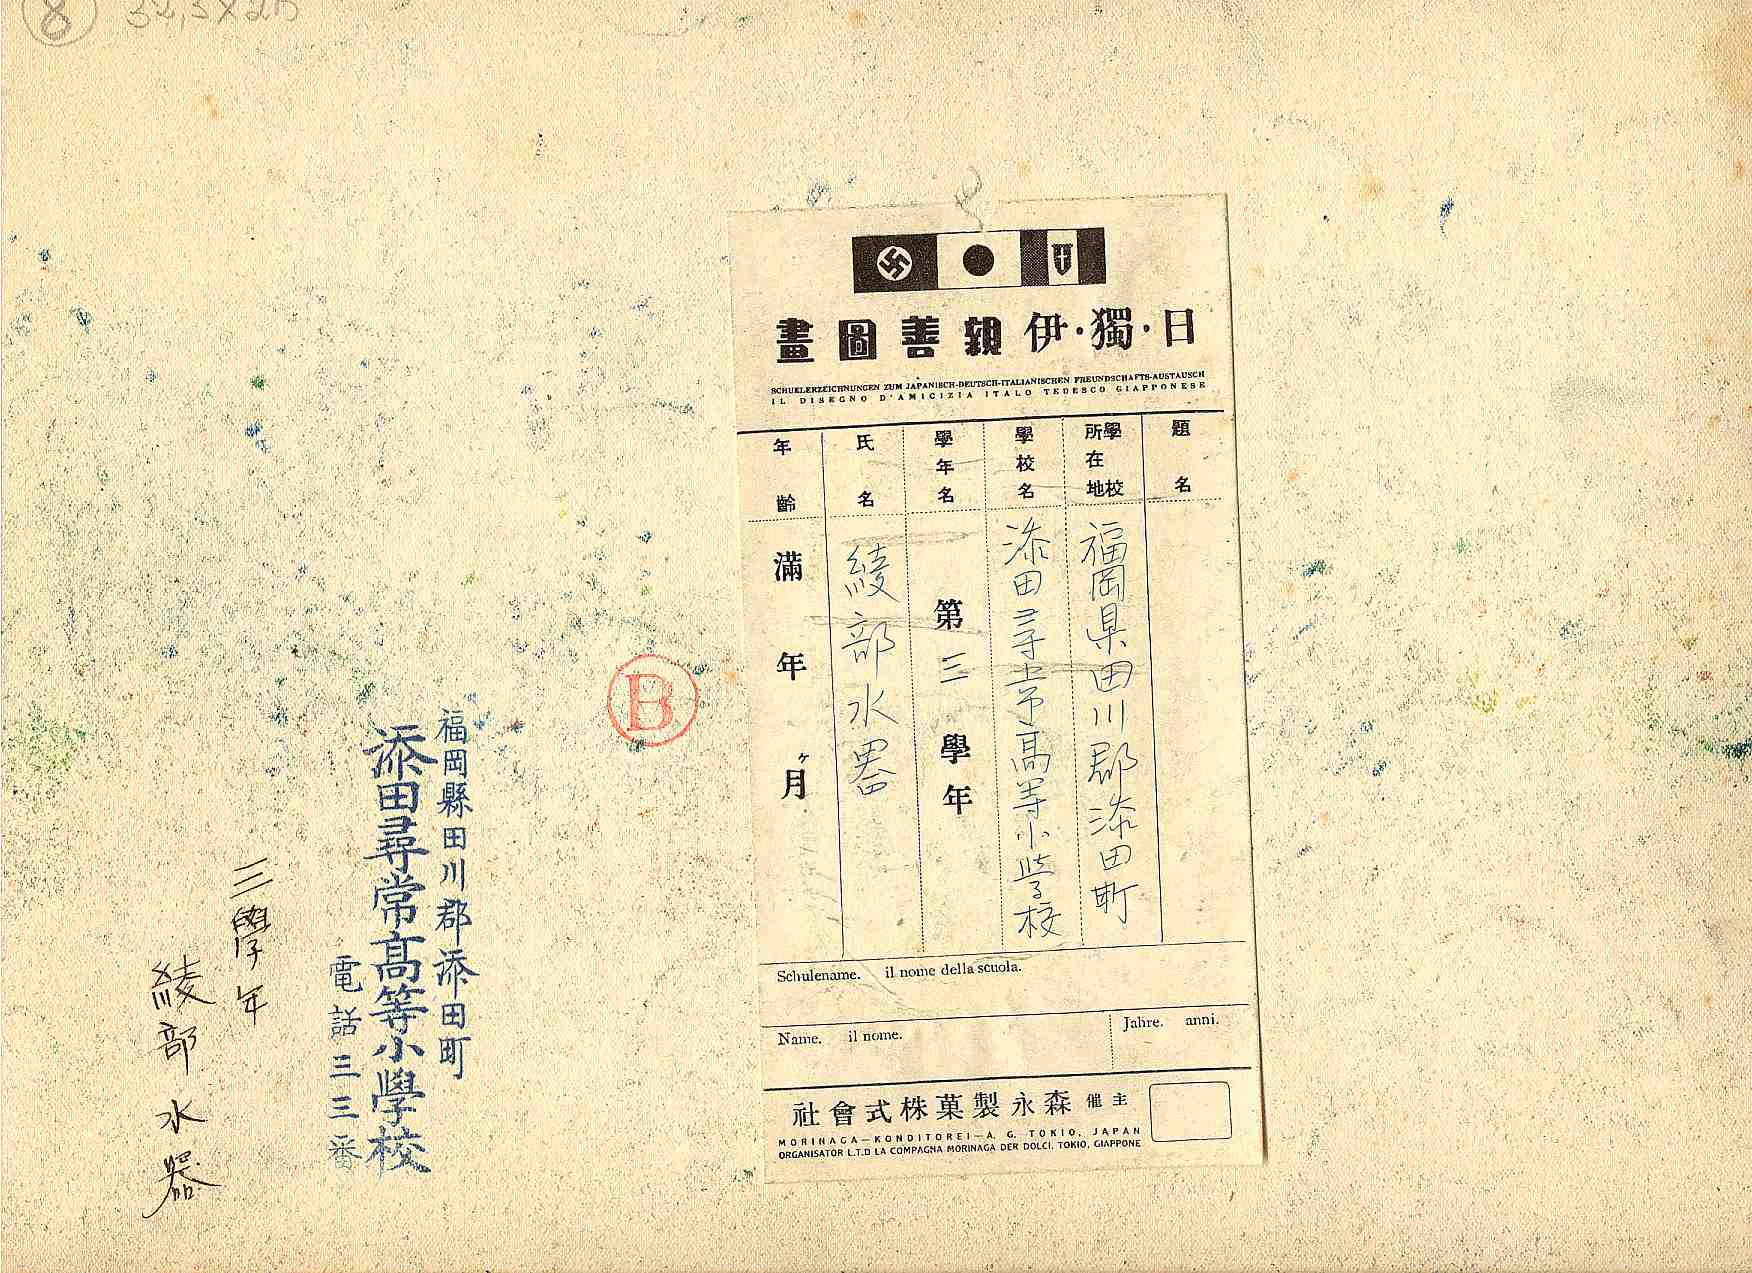 8 32,5×25
日・獨・伊親善圖畫
SCHUELERZEICHNUNGEN ZUM JAPANISCH-DEUTSCH-ITALIANISCHEN FREUNDSCHAFTS-AUSTAUSCH
IL DISEGNO D'AMICIZIA ITALO TEDESCO GIAPPONESE
題名
學校所在地
福岡県田川郡添田町
學校名
添田尋常高等小學校
學年名
第三學年
氏名
綾部水器
年齡
滿年ヶ月
Schulename. il nome della scuola.
Name. il nome.
Jahre. anni.
主催 森永製菓株式會社
MORINAGA—KONDITOREI—A. G. TOKIO, JAPAN
ORGANISATOR L.T.D LA COMPAGNA MORINAGA DER DOLCI, TOKIO, GIAPPONE
B
福岡縣田川郡添田町
添田尋常高等小學校
電話三三番
三學年
綾部水器